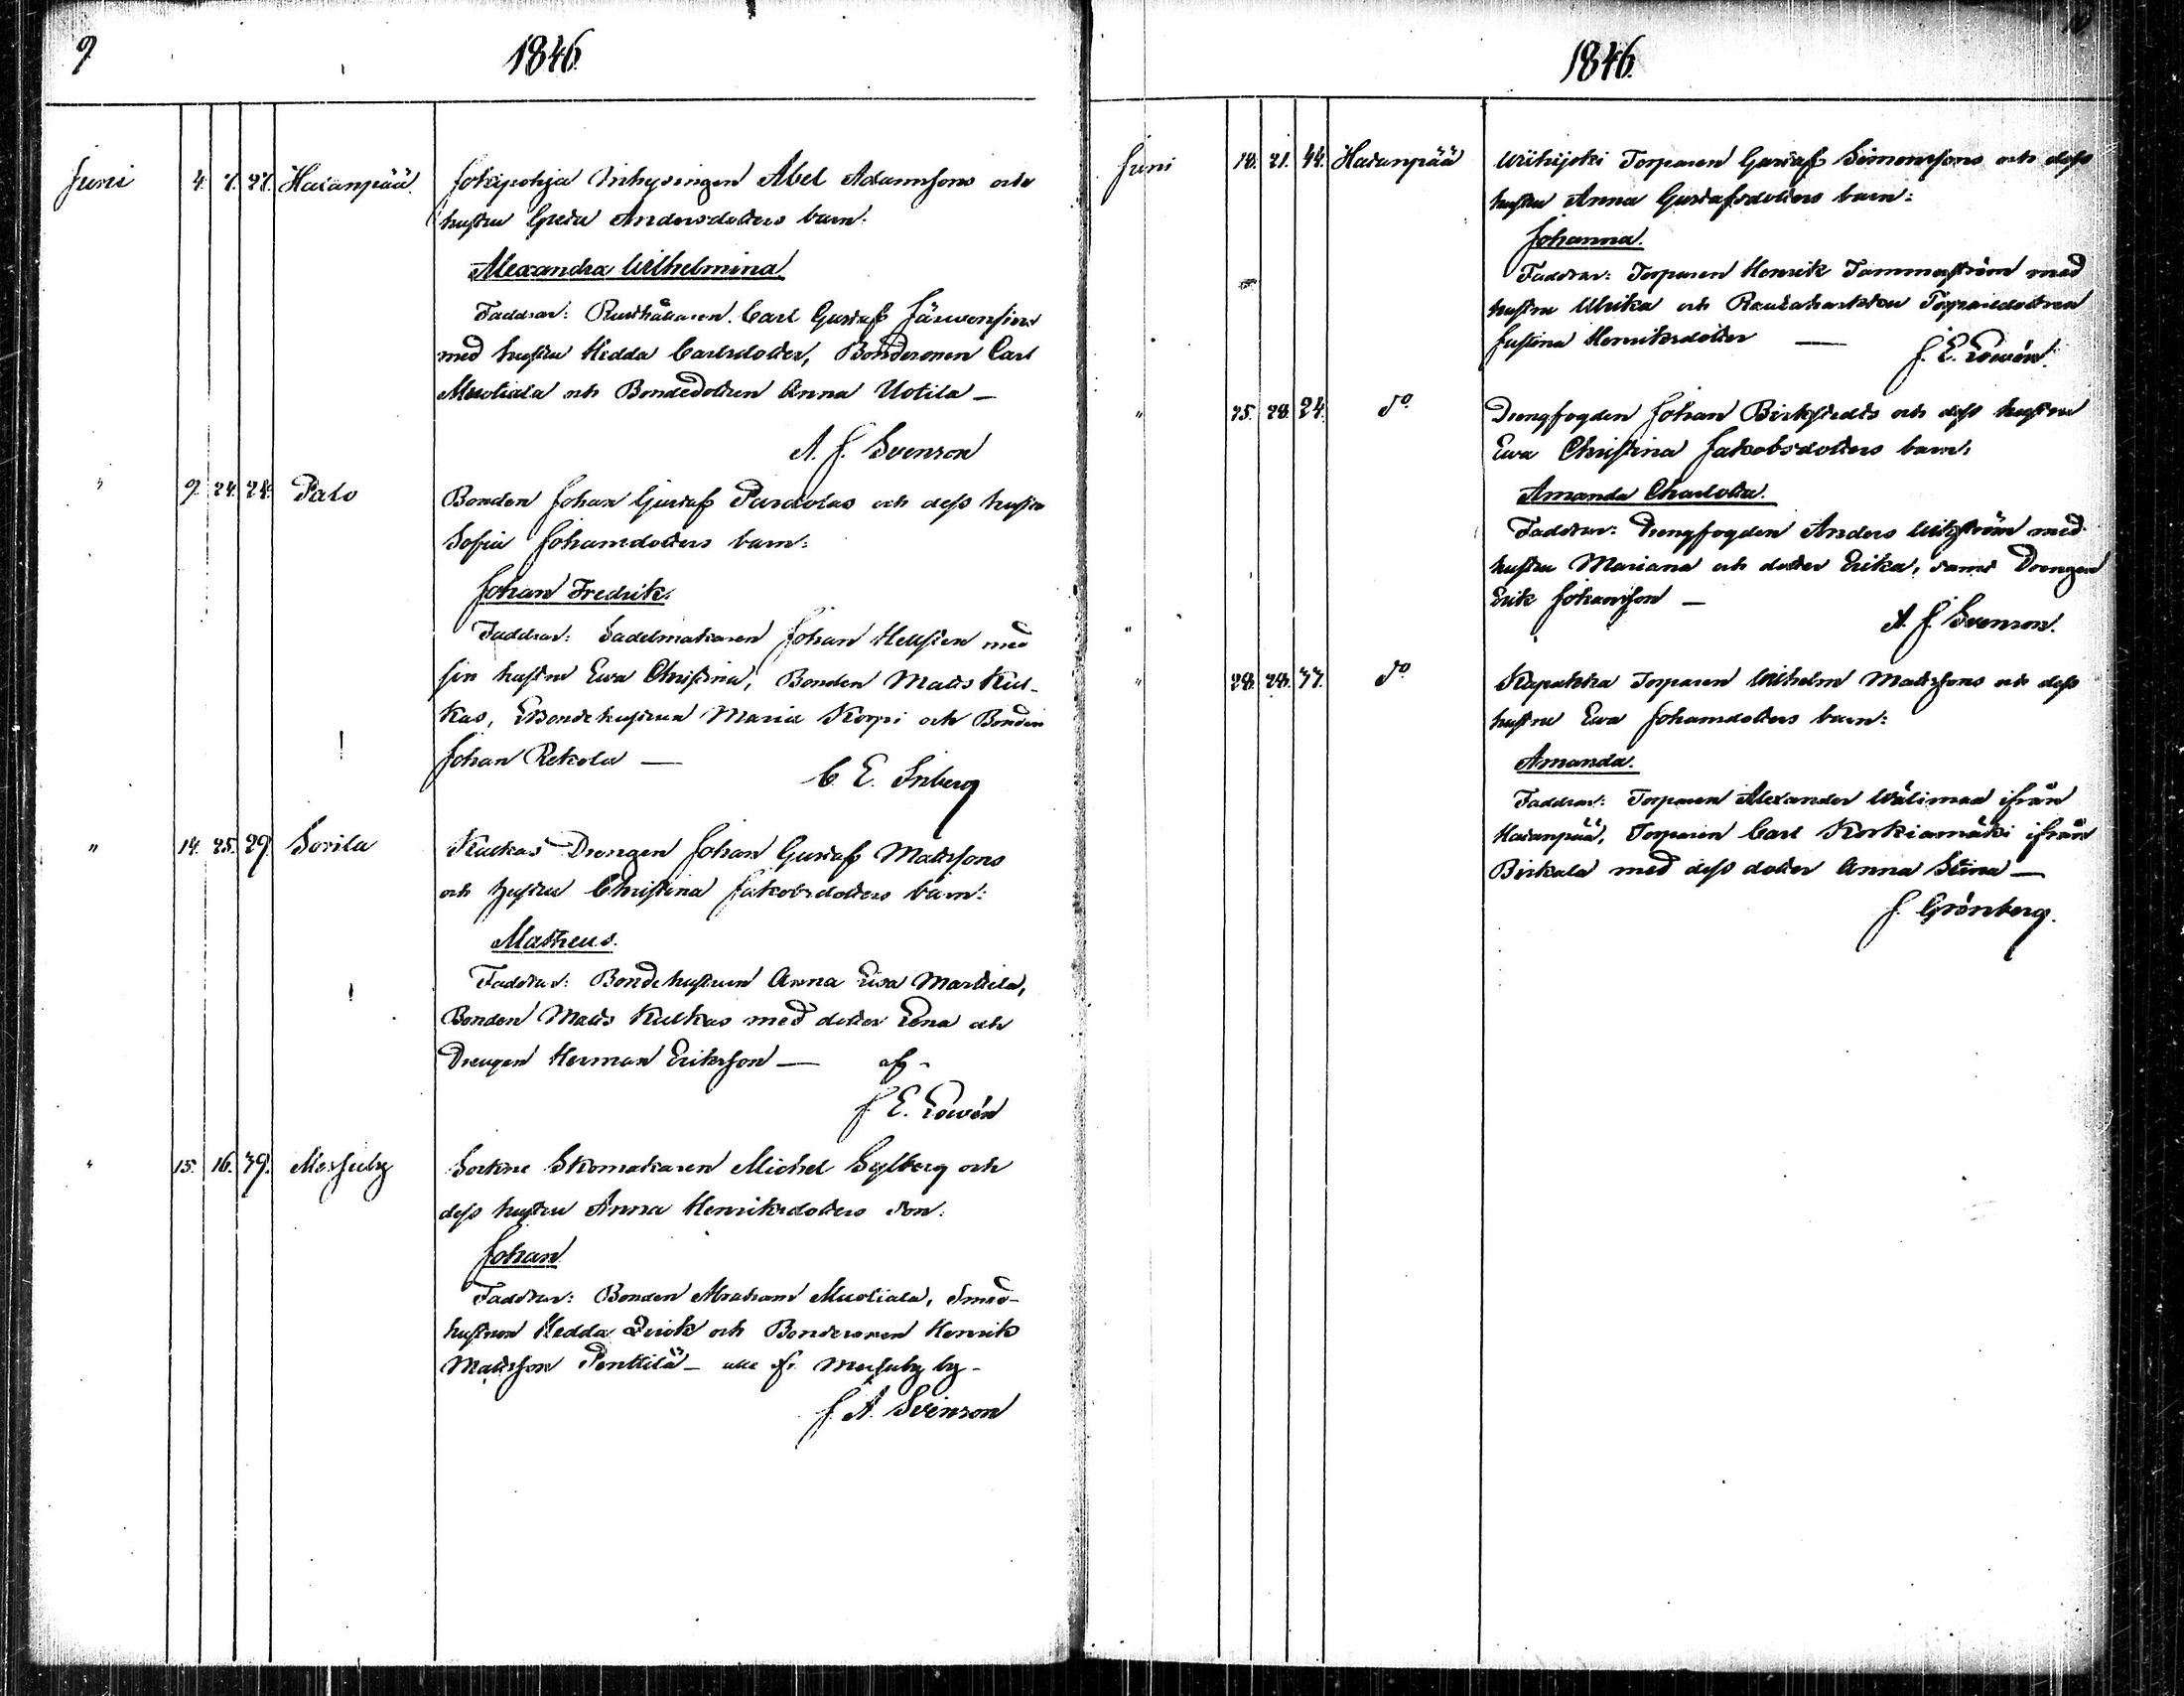 9.
1846.
Juni 4. 7. 27. Hatanpää. Jokipohja Inhysingen Abel Adamssons och
hustru Greta Andersdotters barn:
Alexandra Wilhelmina
Faddrar: Rusthållaren Carl Gustaf Järwensivu
med hustru Hedda Carlsdotter, Bondesonen Carl
Muotiala och Bondedottren Anna Uotila —
A. J. Svenson
" 9. 24. 24. Palo Bonden Johan Gustaf Pardolas och dess hustru
Sofia Johansdotters barn:
Johan Fredrik.
Faddrar: Sadelmakaren Johan Hellsten med
sin hustru Ewa Christina, Bonden Matts Kul-
kas, Bondehustrun Maria Korpi och Bonden
Johan Rekola —
C. E. Inberg
" 14. 25. 29. Sorila Kulkas Drengen Johan Gustaf Mattssons
och hustru Christina Jakobsdotters barn:
Matheus.
Faddrar: Bondehustrun Anna Lisa Marttila,
Bonden Matts Kulkas med dotter Lena och
Drengen Herman Eriksson — af -
J. E. Lowén
" 15. 16. 39. Messuby Sockne Skomakaren Michel Sylberg och
dess hustru Anna Henriksdotters son:
Johan
Faddrar: Bonden Abraham Muotiala, Smed-
hustrun Hedda och Bondesonen Henrik
Mattsson Penttilä — alla fr. Messuby by -
J. A. Svenson
10
1846.
Juni 18. 21. 44. Hatanpää Wiikijoki Torparen Gustaf Simonssons och dess
hustru Anna Gustafsdotters barn:
Johanna.
Faddrar: Torparen Henrik Tammerström med
hustru Ulrika och Torparedottren
Justina Henriksdotter —
J. E. Lowén.
" 25. 28. 24. do Drengfogden Johan Birkstedts och dess hustru
Ewa Christina Jakobsdotters barn:
Amanda Charlotta.
Faddrar: Drengfogden Anders Wikström med
hustru Mariana och dotter Erika, samt Drengen
Erik Johansson —
A. J. Svenson.
" 28. 28. 37. do Kapakka Torparen Wilhelm Mattssons och dess
hustru Ewa Johansdotters barn:
Amanda.
Faddrar: Torparen Alexander Wälimaa ifrån
Hatanpää, Torparen Carl Korkiamäki ifrån
Birkala med dess dotter Anna Stina —
J. Grönberg.